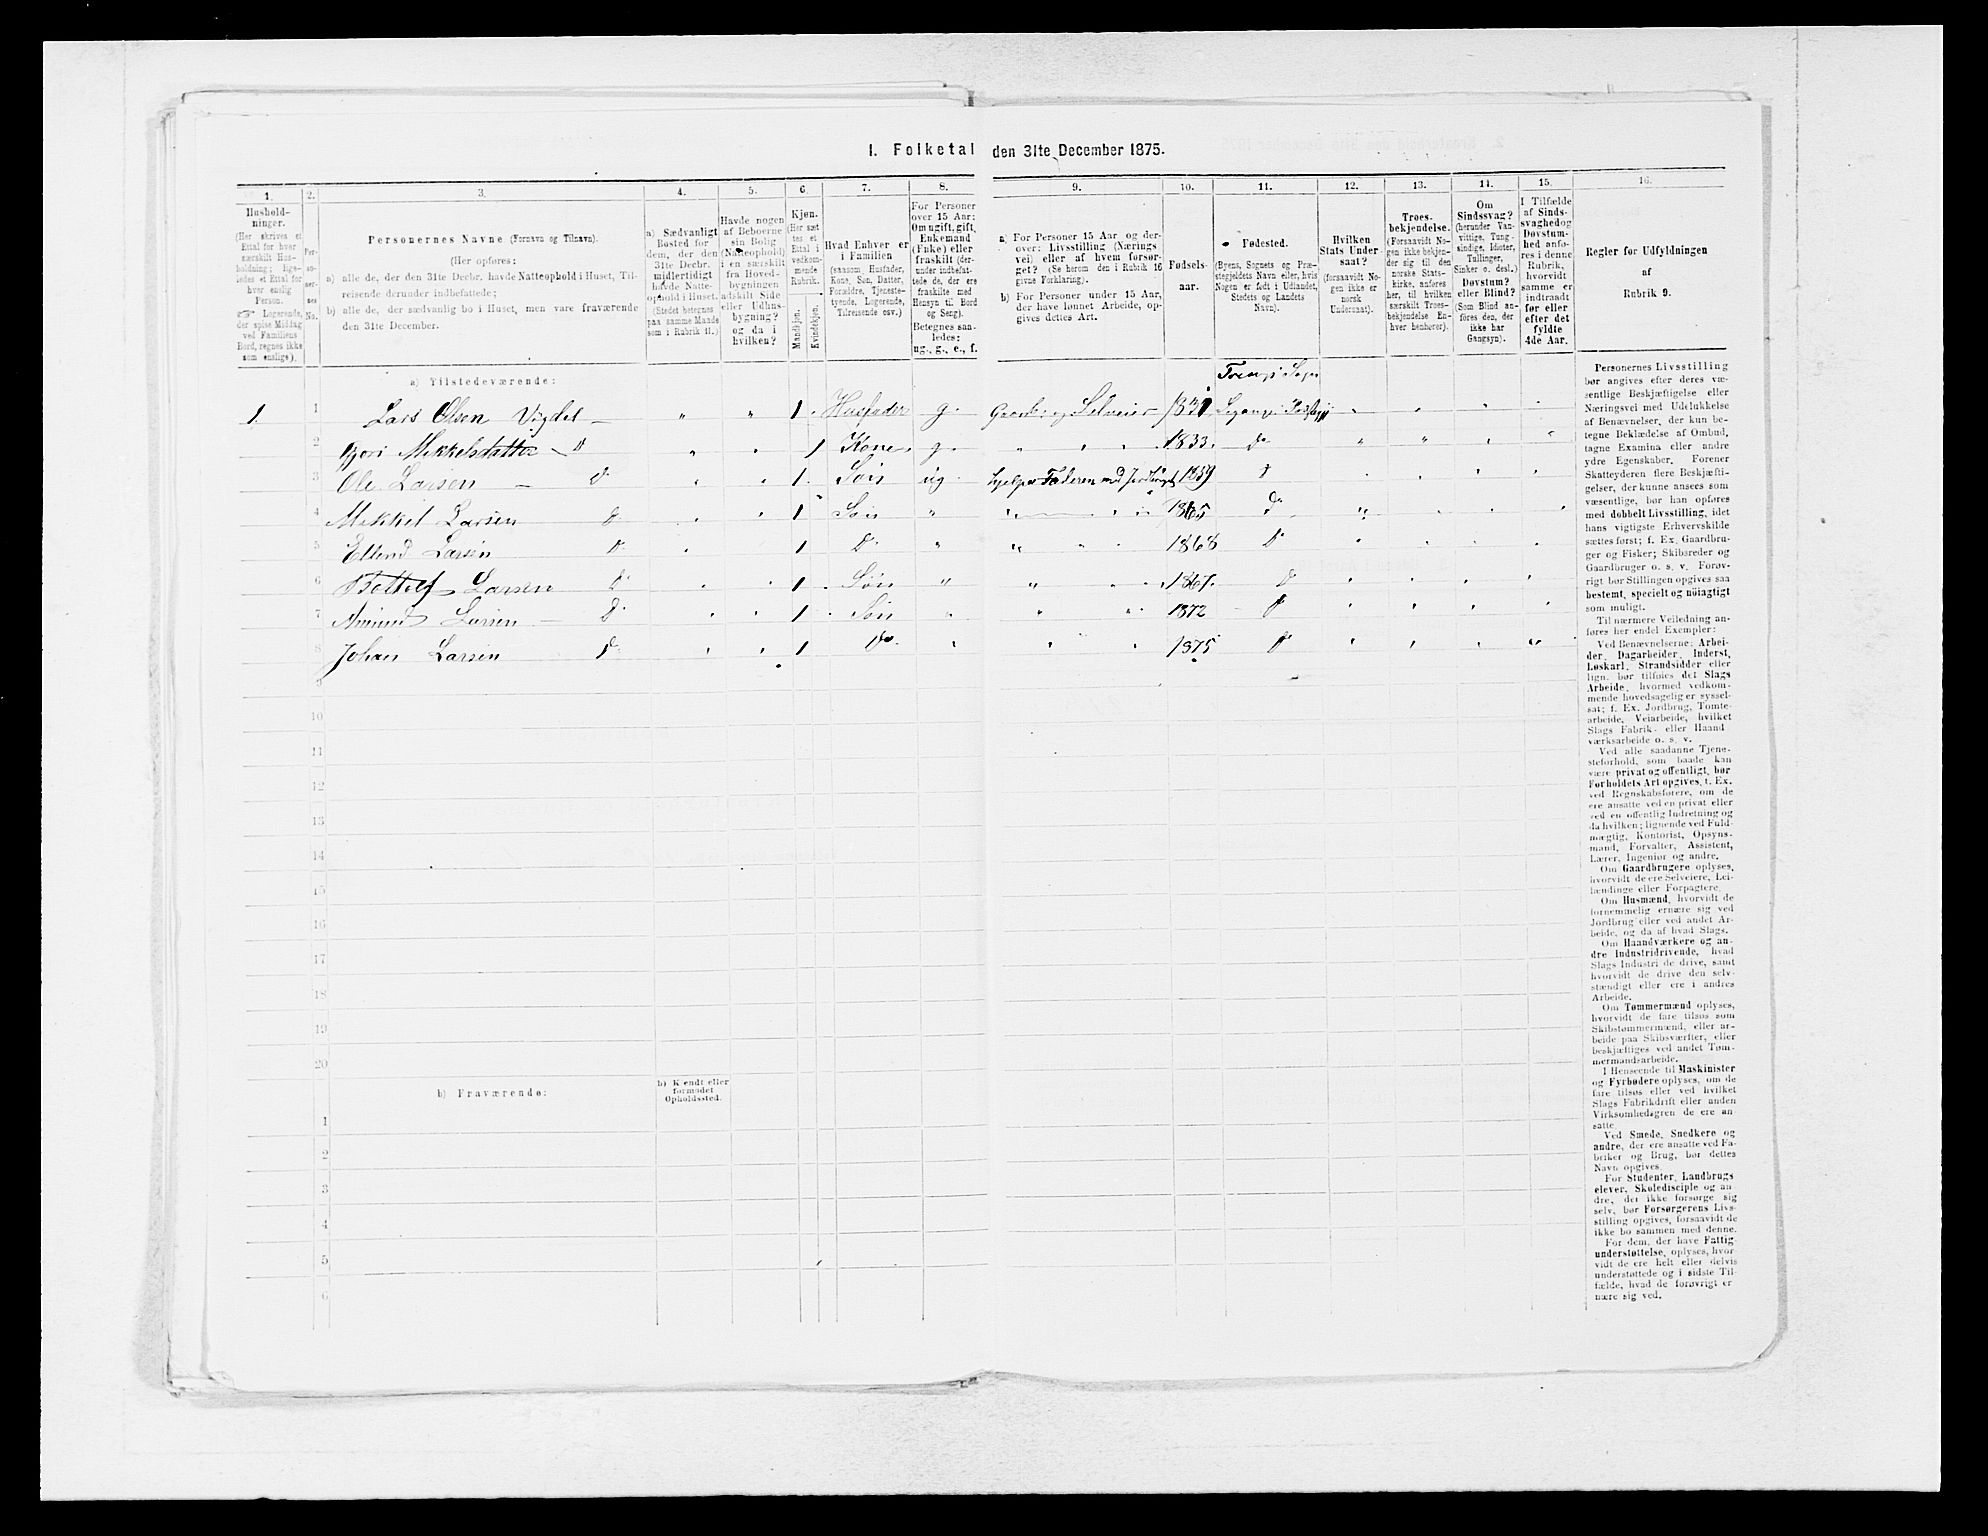 I. Folketal den 31te December 1875.
1. 2. 3. 4. 5. 6. 7. 8. 9. 10. 11. 12. 13. 14. 15. 16.
Hushold-
ninger.
(Her skrives et
Ettal for hver
særskilt Hus-
holdning; lige-
ledes et Ettal for
hver enslig
Person.
Logerende,
der spise Middag
ved Familiens
Bord, regnes ikke
som enslige).
Per-
so-
ner-
nes
No.
Personernes Navne (Fornavn og Tilnavn).
(Her opføres:
a) alle de, der den 31te Decbr. havde Natteophold i Huset, Til-
reisende derunder indbefattede;
b) alle de, der sædvanlig bo i Huset, men vare fraværende
den 31te December.
a) Sædvanligt
Bosted for
dem, der den
31te Decbr.
midlertidigt
havde Natte-
ophold i Huset.
(Stedet betegnes
paa samme Maade
som i Rubrik 11.)
Havde nogen
af Beboerne
sin Bolig
(Natteophold)
i en særskilt
fra Hoved-
bygningen
adskilt Side
eller Udhus-
bygning?
og da i
hvilken?
Kjøn.
(Her sæt-
tes et
Ettal i
vedkom-
mende
Rubrik.
Mandkjøn.
Kvindekjøn.
Hvad Enhver er
i Familien
(saasom Husfader,
Kone, Søn, Datter,
Forældre, Tjeneste-
tyende, Logerende,
Tilreisende osv.)
For Personer
over 15 Aar:
Om ugift, gift,
Enkemand
(Enke) eller
fraskilt (der-
under indbefat-
tede de, der ere
fraskilte med
Hensyn til Bord
og Seng).
Betegnes saa-
ledes:
ug., g., e., f.
a) For Personer 15 Aar og der-
over: Livsstilling (Nærings-
vei) eller af hvem forsør-
get? (Se herom den i Rubrik 16
givne Forklaring).
b) For Personer under 15 Aar,
der have lønnet Arbeide, op-
gives dettes Art.
Fødsels-
aar.
Fødested.
(Byens, Sognets og Præ-
stegjeldets Navn eller, hvis
Nogen er født i Udlandet,
Stedets og Landets
Navn).
Hvilken
Stats Under-
saat?
(forsaavidt No-
gen ikke er
norsk
Undersaat).
Troes-
bekjendelse.
(Forsaavidt No-
gen ikke bekjen-
der sig til den
norske Stats-
kirke, anføres
her, til hvilken
særskilt Troes-
bekjendelse En-
hver henhører).
Om
Sindssvag?
(herunder Van-
vittige, Tung-
sindige, Idioter,
Tullinger,
Sinker o. desl.)
Døvstum?
eller Blind?
(Som Blind an-
føres den, der
ikke har
Gangsyn).
I Tilfælde
af Sinds-
svaghed og
Døvstum-
hed anfø-
res i denne
Rubrik,
hvorvidt
samme er
indtraadt
før eller
efter det
fyldte
4de Aar.
Regler for Udfyldningen
af
Rubrik 9.
a) Tilstedeværende:
1. 1 Lars Olsen Vigdal — " " 1 Husfader g. Selveier 1831
2 Mikkelsdatter — D 1 Kone g. 1833 do
3 Ole Larsen — D 1 Søn ug. Hjelper Faderen med 1859 D
4 Mikkel Larsen D 1 Søn " 1865 D
5 Larsen D 1 D " 1868 D
6 Larsen D 1 Søn " 1867 D
7 Larsen — D 1 Søn 1872 D
8 Johan Larsen D 1 Do 1875 D
9
10
11
12
13
14
15
16
17
18
19
20
b) Fraværende:
b) Kjendt eller
formodet
Opholdssted.
1
2
3
4
5
6
Personernes Livsstilling
bør angives efter deres væ-
sentlige Beskjæftigelse eller
Næringsvei med Udelukkelse
af Benævnelser, der kun be-
tegne Beklædelse af Ombud,
tagne Examina eller andre
ydre Egenskaber. Forener
Skatteyderen flere Beskjæfti-
gelser, der kunne ansees som
væsentlige, bør han opføres
med dobbelt Livsstilling, idet
hans vigtigste Erhvervskilde
sættes først; f. Ex. Gaardbru-
ger og Fisker; Skibsreder og
Gaardbruger o. s. v. Forøv-
rigt bør Stillingen opgives saa
bestemt, specielt og nøiagtigt
som muligt.
Til nærmere Veiledning an-
føres her endel Exempler:
Ved Benævnelserne: Arbei-
der, Dagarbeider, Inderst,
Løskarl, Strandsidder eller
lign. bør tilføies det Slags
Arbeide, hvormed vedkom-
mende hovedsagelig er syssel-
sat; f. Ex. Jordbrug, Tomte-
arbeide, Veiarbeide, hvilket
Slags Fabrik- eller Haand-
værksarbeide o. s. v.
Ved alle saadanne Tjene-
steforhold, som baade kan
være privat og offentligt, bør
Forholdets Art opgives, f. Ex.
ved Regnskabsførere, om de
ere ansatte ved en privat eller
ved en offentlig Indretning og
da hvilken; lignende ved Fuld-
mægtig, Kontorist, Opsyns-
mand, Forvalter, Assistent,
Lærer, Ingeniør og andre.
Om Gaardbrugere oplyses,
hvorvidt de ere Selveiere, Lei-
lændinge eller Forpagtere.
Om Husmænd, hvorvidt de
fornemmelig ernære sig ved
Jordbrug eller ved andet Ar-
beide, og da af hvad Slags.
Om Haandværkere og an-
dre Industridrivende, hvad
Slags Industri de drive, samt
hvorvidt de drive den selv-
stændigt eller ere i andres
Arbeide.
Om Tømmermænd oplyses,
hvorvidt de fare tilsøs som
Skibstømmermænd, eller ar-
beide paa Skibsværfter, eller
beskjæftiges ved andet Tøm-
mermandsarbeide.
I Henseende til Maskinister
og Fyrbødere oplyses, om de
fare tilsøs eller ved hvilket
Slags Fabrikdrift eller anden
Virksomhedsgren de ere an-
satte.
Ved Smede, Snedkere og
andre, der ere ansatte ved Fa-
briker og Brug, bør dettes
Navn opgives.
For Studenter, Landbrugs-
elever, Skoledisciple og an-
dre, der ikke forsørge sig
selv, bør Forsørgerens Livs-
stilling opgives, forsaavidt de
ikke bo sammen med denne.
For dem, der have Fattig-
understøttelse, oplyses, hvor-
vidt de ere helt eller delvis
understøttede og i sidste Til-
fælde, hvad de forøvrigt er-
nære sig ved.